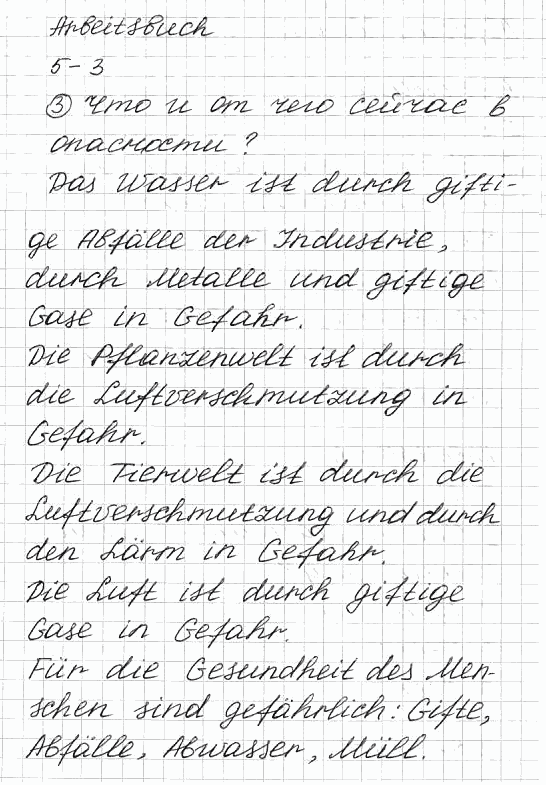 Arbeitsbuch
5-3
③ Что и от чего сейчас в
опасности?
Das Wasser ist durch gifti-
ge Abfälle der Industrie,
durch Metalle und giftige
Gase in Gefahr.
Die Pflanzenwelt ist durch
die Luftverschmutzung in
Gefahr.
Die Tierwelt ist durch die
Luftverschmutzung und durch
den Lärm in Gefahr.
Die Luft ist durch giftige
Gase in Gefahr.
Für die Gesundheit des Men-
schen sind gefährlich: Gifte,
Abfälle, Abwasser, Müll.